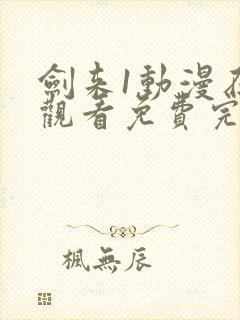 劍来1動漫
觀看免費完
楓無辰